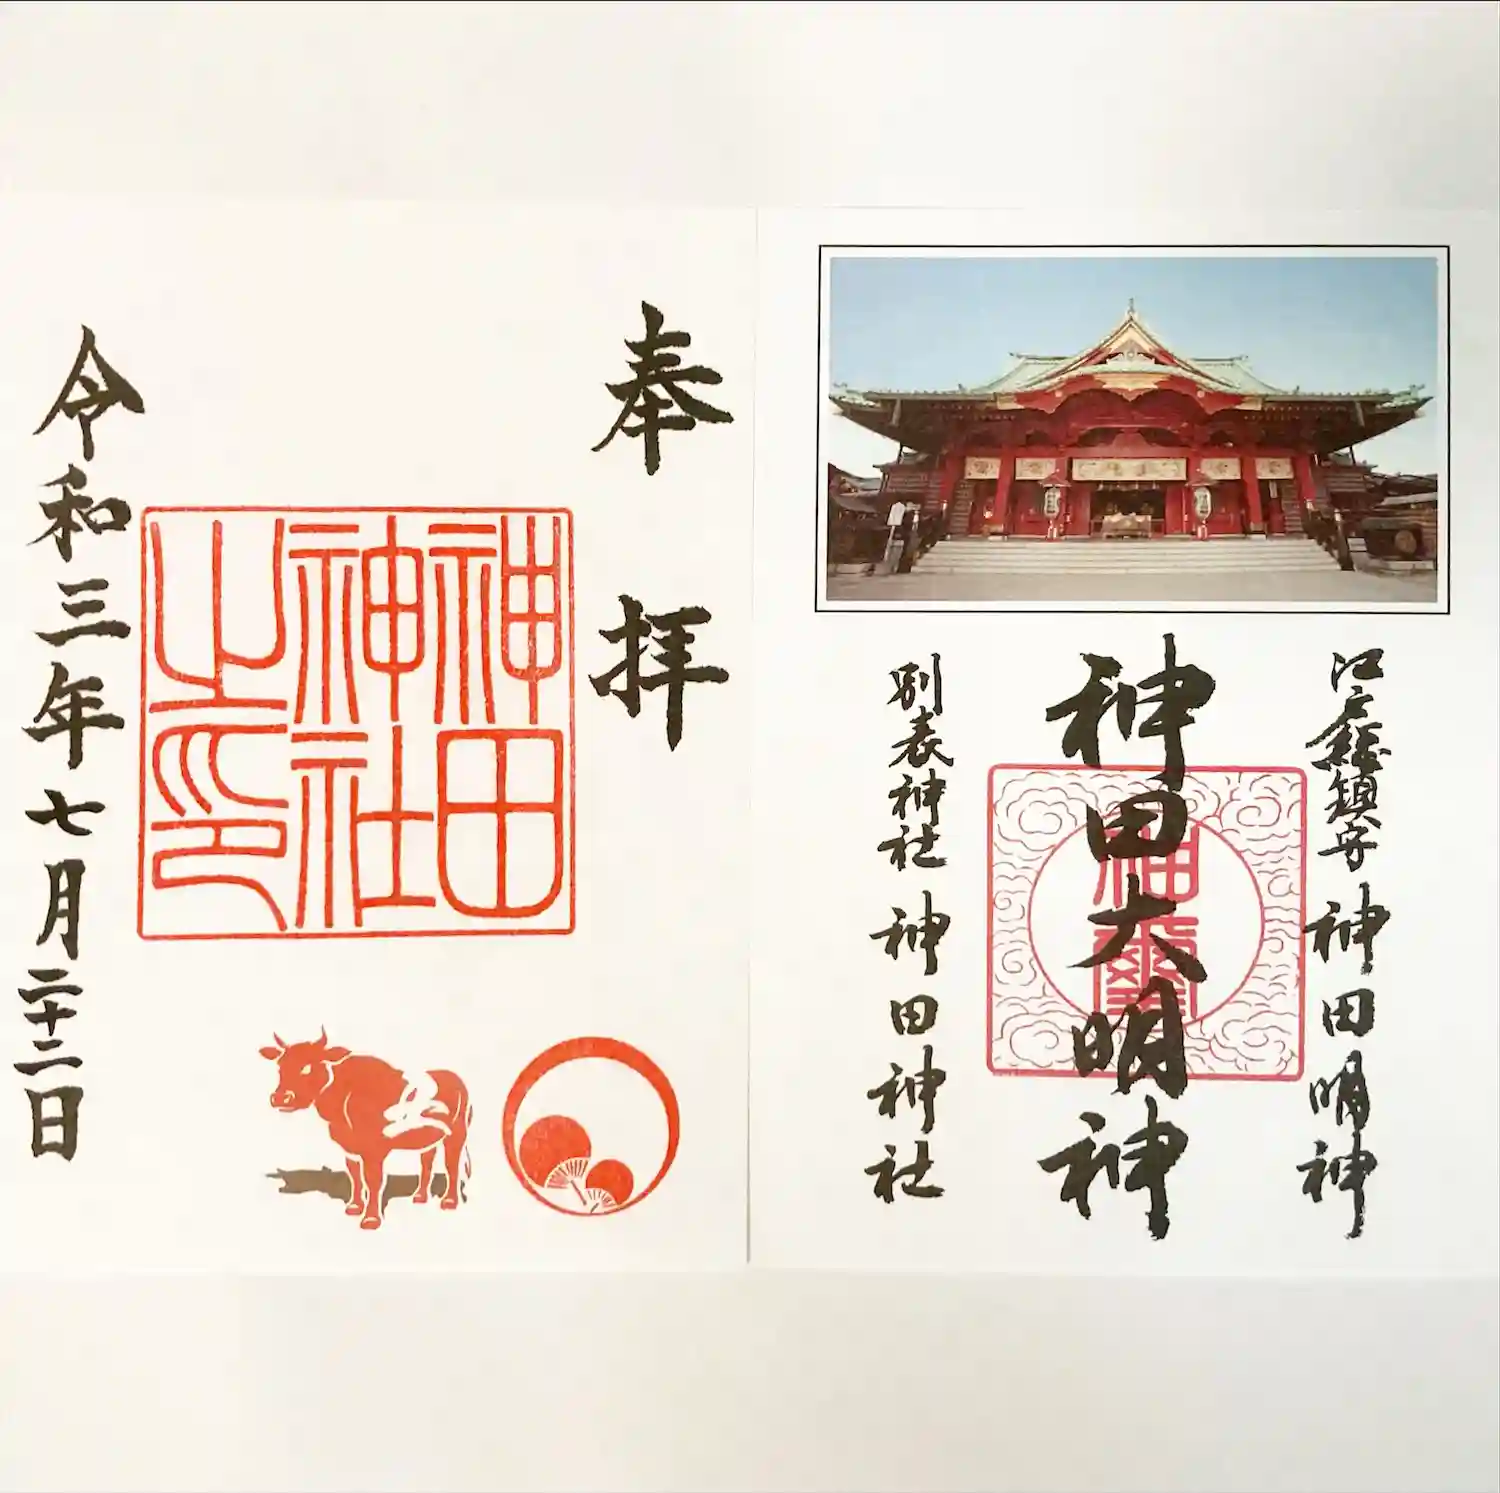 江戸総鎮守 神田明神
神田大明神
神璽
別表神社 神田神社
奉拝
神田神社之印
令和三年七月二十二日